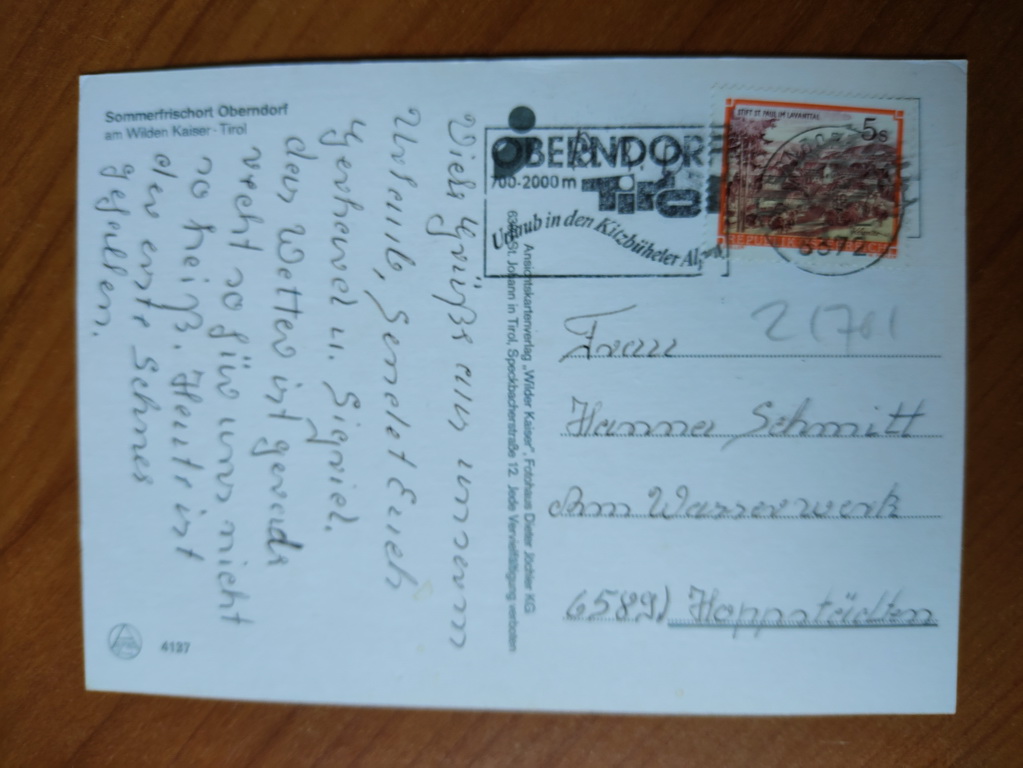 Sommerfrischort Oberndorf
am Wilden Kaiser · Tirol
Viele Grüße aus unserem
Urlaub, sendet Euch
Gerhard u. Sigrid.
das Wetter ist gerade
recht so für uns nicht
so heiß. Heute ist
der erste Schnee
gefallen.
4127
Ansichtskartenverlag „Wilder Kaiser“, Fotohaus Dieter Jöchler KG
St. Johann in Tirol, Speckbacherstraße 12. Jede Vervielfältigung verboten
OBERNDORF
700-2000 m Tirol
Urlaub in den Kitzbüheler Alpen
STIFT ST. PAUL IM LAVANTTAL
5s
REPUBLIK
6372
21701
Frau
Hanna Schmitt
Am Wasserwerk
6589) Hoppstädten